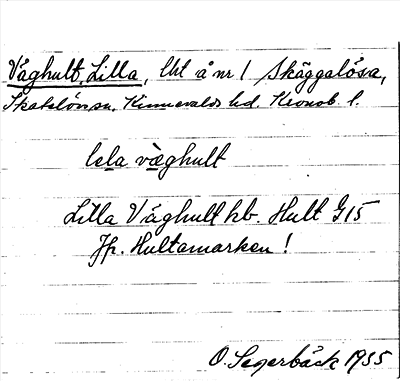 Våghult, Lilla, lht å nr 1 Skäggalösa,
Skatelövs sn. Kinnevalds hd. Kronob. l.
lɩla væghult
Lilla Våghult kb. Hult G15
Jfr. Hultamarken!
O. Segerbäck 1955